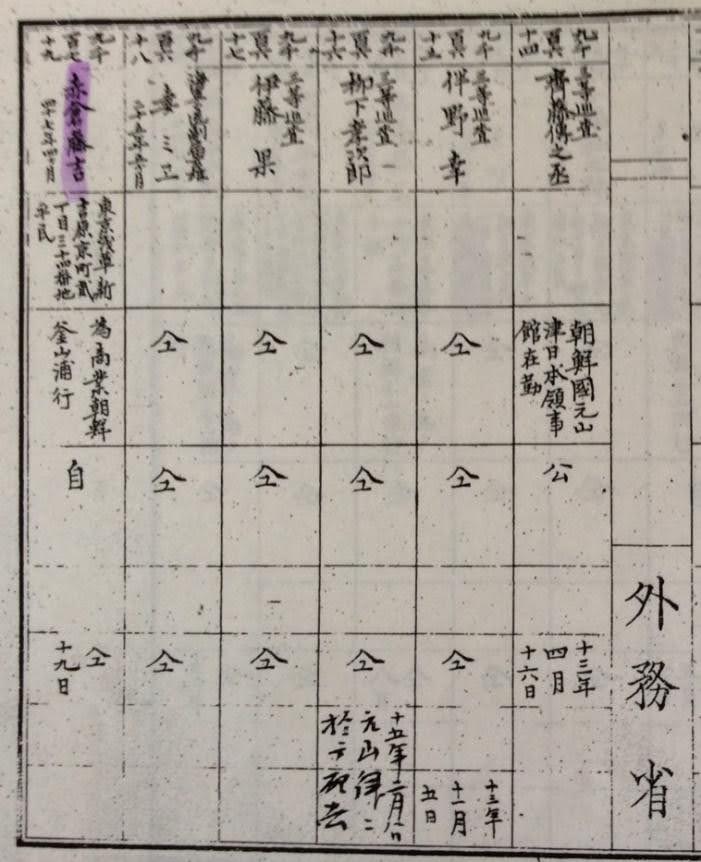 外務省
九千
百六
十四
三等巡査
齊藤傳之丞
朝鮮國元山
津日本領事
館在勤
公
十三年
四月
十六日
九千
百六
十五
三等巡査
伴野幸
仝
仝
仝
十三年
十一月
五日
九千
百六
十六
三等巡査
柳下孝次郎
仝
仝
仝
十五年二月
元山津ニ
於テ死去
九千
百六
十七
三等巡査
伊藤果
仝
仝
仝
九千
百六
十八
妻ミエ
仝
仝
仝
九千
百七
十九
赤倉藤吉
四十七年四ヶ月
東京浅草新
吉原京町貳
丁目三十四番地
平民
為商業朝鮮
釜山浦行
自
仝
十九日